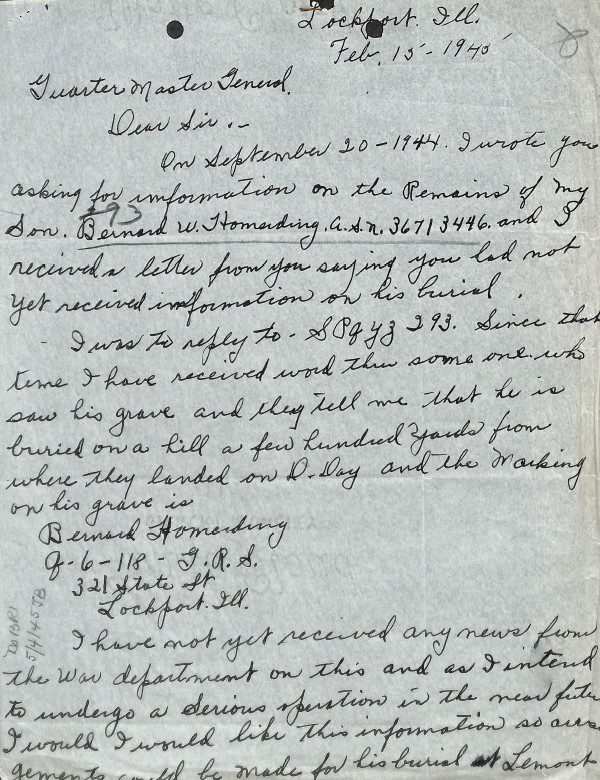 Lockport. Ill.
Feb. 15 - 1945
Quarter Master General.
Dear Sir. -
On September 20 - 1944. I wrote you
asking for imformation on the Remains of my
293
Son. Bernard W. Homerding. A.S.N. 36713446. and I
received a letter from you saying you had not
yet received imformation on his burial.
I was to reply to - SPQYG 293. Since that
time I have received word thru some one who
saw his grave and they tell me that he is
buried on a hill a few hundred yards from
where they landed on D-Day and the Marking
on his grave is
Bernard Homerding
Q-6-118 - G.R.S.
321 State St
Lockport. Ill.
5/4/45 JB
I have not yet received any news from
the War department on this and as I intend
to undergo a Serious operation in the near future
I would I would like this information so arran
gements could be made for his burial at Lemont